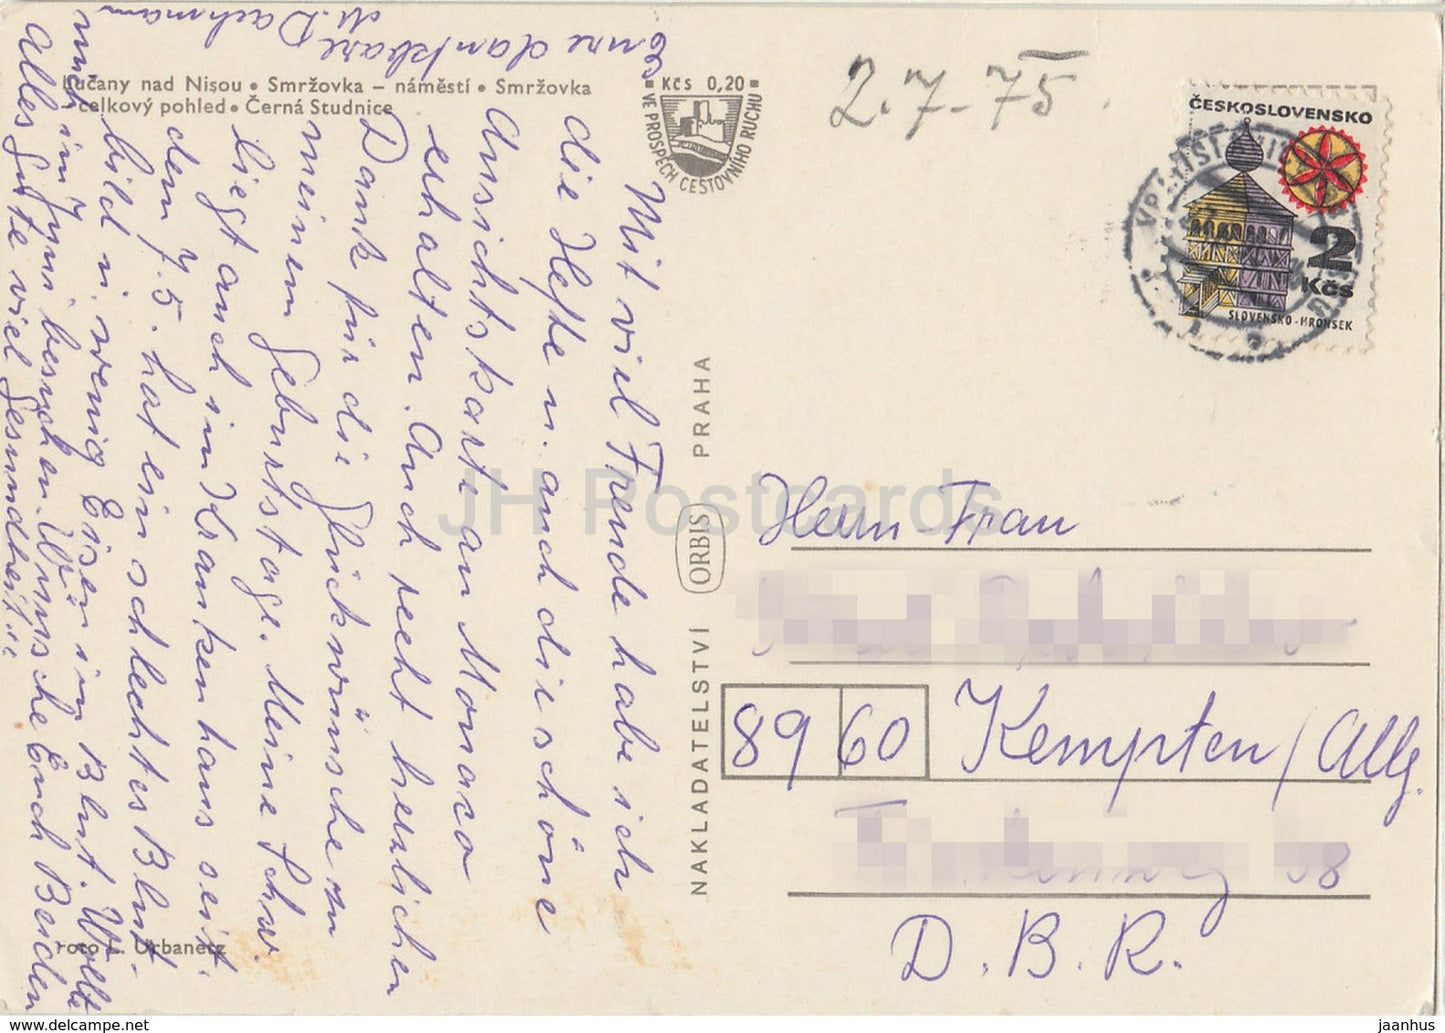 Lučany nad Nisou • Smržovka – náměstí • Smržovka
celkový pohled • Černá Studnice
Kčs 0,20
VE PROSPĚCH CESTOVNÍHO RUCHU
2.7.-75.
ČESKOSLOVENSKO
2 Kčs
SLOVENSKO-HRONSEK
Mit viel Freude habe ich
die Hefte u. auch die schöne
Ansichtskarte an Monaco
erhalten. Auch recht herzlichen
Dank für die Glückwünsche zu
meinem Geburtstage. Meine Schw.
liegt auch im Krankenhaus seit
dem 7.5. hat ein schlechtes Blut
bild u. wenig Eisen im Blut. Wollte
mich im Juni besuchen. Wünsche Euch Beiden
alles Gute viel Gesundheit"
Eure dankbare
M. Dachmann
foto L. Urbanetz
NAKLADATELSTVÍ ORBIS PRAHA
JH Postcards
Herrn Frau
8960 Kempten/Allg.
38
D.B.R.
www.delcampe.net
jaanhus